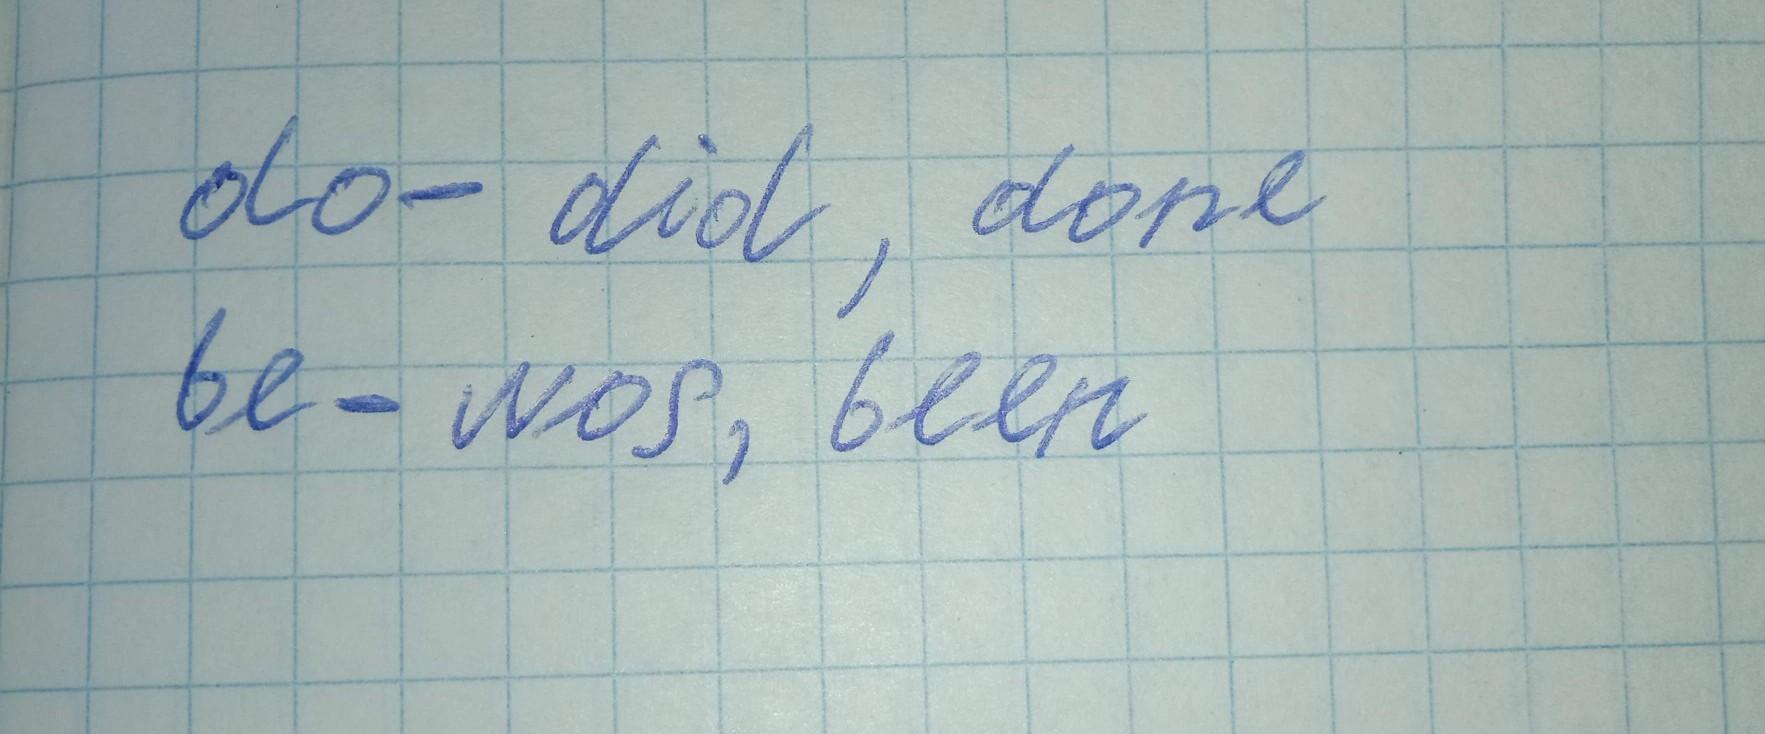 do - did, done
be - was, been